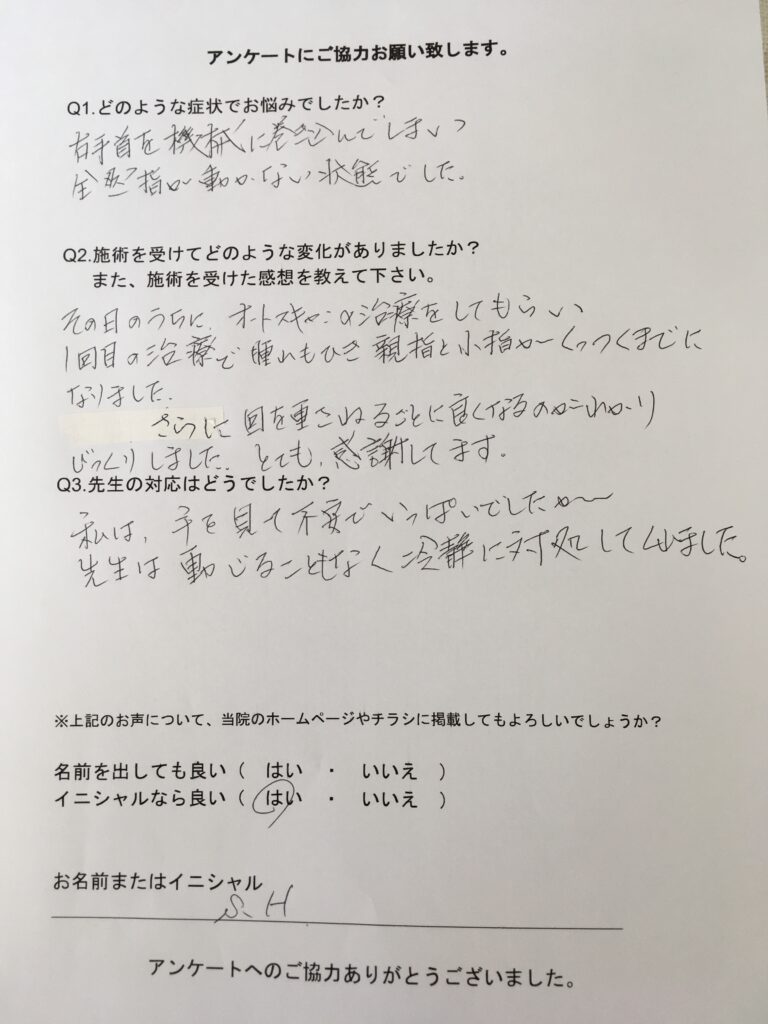 アンケートにご協力お願い致します。
Q1.どのような症状でお悩みでしたか？
右手首を機械に巻き込んでしまいつ
全然指が動かない状態でした。
Q2.施術を受けてどのような変化がありましたか？
また、施術を受けた感想を教えて下さい。
その日のうちに、オートスキャンα治療をしてもらい
1回目の治療で腫れもひき親指と小指がくっつくまでに
なりました。
さらに回を重さねるごとに良くなるのがわかり
びっくりしました。とても、感謝してます。
Q3.先生の対応はどうでしたか？
私は、手を見て不安でいっぱいでしたが
先生は動じることもなく冷静に対処してくれました。
※上記のお声について、当院のホームページやチラシに掲載してもよろしいでしょうか？
名前を出しても良い（　はい　・　いいえ　）
イニシャルなら良い（　はい　・　いいえ　）
お名前またはイニシャル
S.H
アンケートへのご協力ありがとうございました。